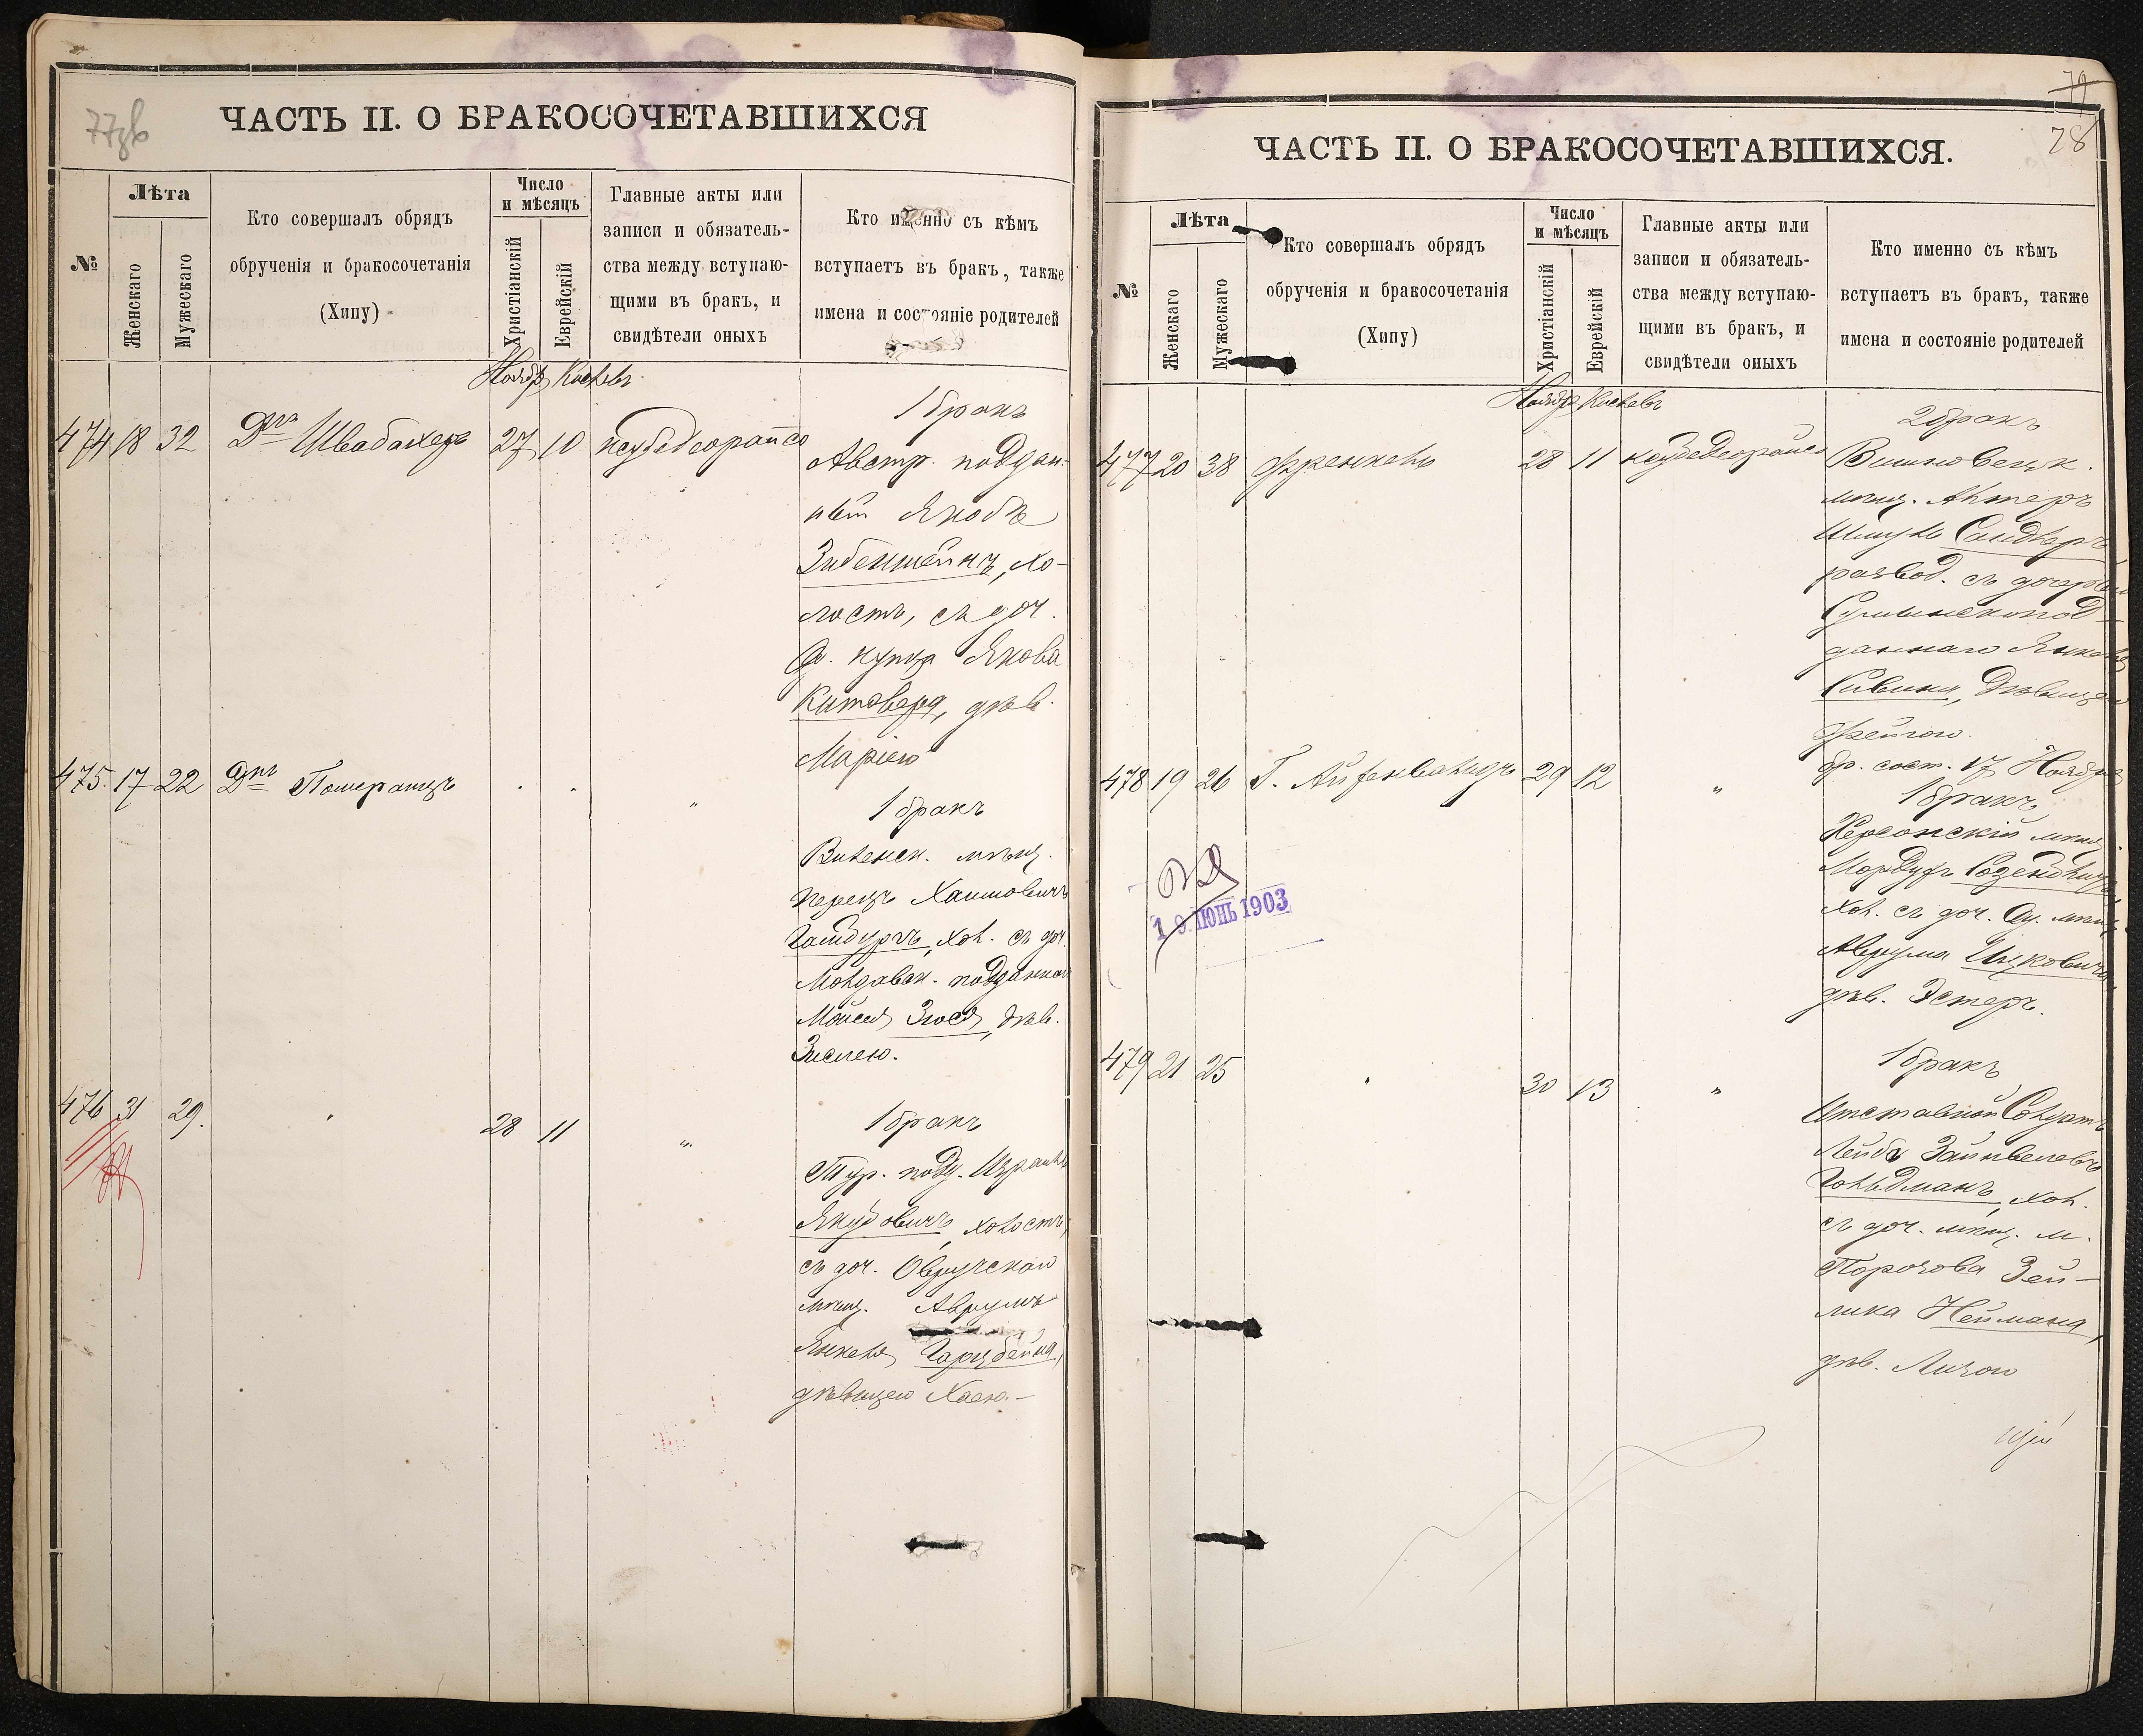 77об
ЧАСТЬ II. О БРАКОСОЧЕТАВШИХСЯ
№
Лѣта
Женскаго
Мужескаго
Кто совершалъ обрядъ
обрученія и бракосочетанія
(Хипу)
Число
и мѣсяцъ
Христіанскій
Еврейскій
Главные акты или
записи и обязатель-
ства между вступаю-
щими въ бракъ, и
свидѣтели оныхъ
Кто именно съ кѣмъ
вступаетъ въ бракъ, также
имена и состояніе родителей
Ноябр Кислевъ
474 18 32 Дръ Швабахеръ 27 10
1 бракъ
Австр. поддан-
ный Якобъ
Зибенштейнъ, хо-
лостъ, съ доч.
Од. купца Якова
Китовера, дѣв.
Маріею
475. 17 22 Дръ Померанцъ . . "
1 бракъ
Виленск. мѣщ.
Перецъ Хаимовичъ
Гамбургъ, хол. съ доч.
Молдавск. подданнаго
Мойсея Зюся, дѣв.
Зислею.
476 31 29. " 28 11 "
1 бракъ
Тур. подд. Израиль
Якубовичъ, холостъ,
съ доч. Овручскаго
мѣщ. Аврумъ
Янкеля Гарцбейна,
дѣвицею Хаею.-
79
78
ЧАСТЬ II. О БРАКОСОЧЕТАВШИХСЯ.
№
Лѣта
Женскаго
Мужескаго
Кто совершалъ обрядъ
обрученія и бракосочетанія
(Хипу)
Число
и мѣсяцъ
Христіанскій
Еврейскій
Главные акты или
записи и обязатель-
ства между вступаю-
щими въ бракъ, и
свидѣтели оныхъ
Кто именно съ кѣмъ
вступаетъ въ бракъ, также
имена и состояніе родителей
Ноябр Кислевъ
477 20 38 Френкель 28 11
2 бракъ
Вишновецк.
мѣщ. Алтеръ
Шмуль Сандлеръ
развод. съ дочерью
данного Янкеля
Сивина, дѣвицею
Фейгою.
бр. сост. 17 Ноября
478 19 26 Г. Айзенванцъ 29 12 "
1 бракъ
Херсонскій мѣщ.
Мордухъ Розенблитъ
хол. съ доч. Од. мѣщ.
Аврума Ицковича
дѣв. Эстеръ.
19 ИЮНЬ 1903
479 21 25 " 30 13 "
1 бракъ
Отставной Солдатъ
Лейбъ Зайнвелевъ
Гольдманъ, хол.
съ доч. мѣщ. м.
Порохова Зей-
лика Неймана,
дѣв. Лизою